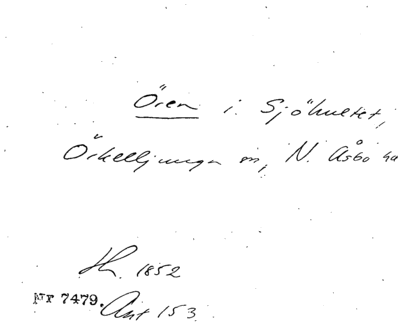 Ören i Sjöhultet,
Örkelljunga sn, N. Åsbo hd
Hr. 1852
Nr 7479. Ant 153